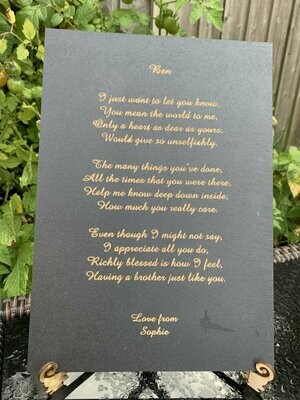 Ben
I just want to let you know,
You mean the world to me,
Only a heart as dear as yours,
Would give so unselfishly.
The many things you've done,
All the times that you were there,
Help me know deep down inside,
How much you really care.
Even though I might not say,
I appreciate all you do,
Richly blessed is how I feel,
Having a brother just like you.
Love from
Sophie